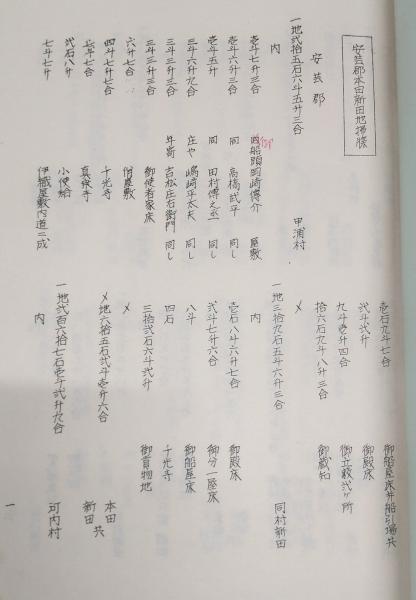 安芸郡本田新田地払帳
安芸郡
一地弐拾五石六斗五升三合 甲浦村
内
壱斗七升三合 御船頭岡崎傳介 屋敷
壱斗六升三合 同 高橋武平 同し
壱斗五升 同 田村傳之丞 同し
三斗六升九合 庄や 嶋崎平太夫 同し
三斗三升三合 年寄 吉松庄右衛門 同し
三斗三升三合 御使者家床
六升七合 宿屋敷
四斗七升七合 十光寺
七合 真乗寺
弐石八升 小使給
七斗七升 伊織屋敷内道ニ成
壱石九斗七合 御船屋床并船引場共
弐斗弐升 御殿床
九斗壱升四合 御立薮弐ヶ所
拾六石九斗八升三合 御蔵知
〆
一地三拾九石五斗六升三合 同村新田
内
壱石八斗六升七合 御殿床
弐斗七升六合 御分一屋床
八斗 御船屋床
四石 十光寺
三拾弐石六斗弐升 御貢物地
〆
〆地六拾五石弐斗壱升六合 本田新田共
一地弐百六拾七石壱斗弐升九合 河内村
内
一